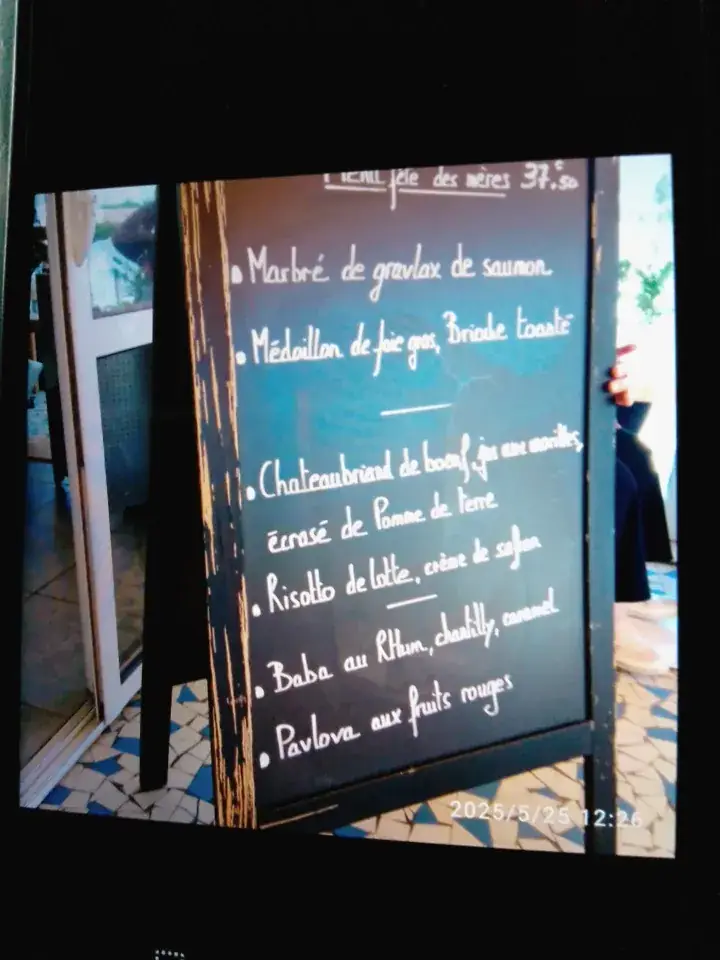 Menu fête des mères 37.€50
• Marbré de gravlax de saumon
• Médaillon de foie gras, Brioche toasté
• Chateaubriand de boeuf, jus aux morilles,
écrasé de Pomme de Terre
• Risotto de lotte, crème de safran
• Baba au Rhum, chantilly, caramel
• Pavlova aux fruits rouges
2025/5/25 12:26